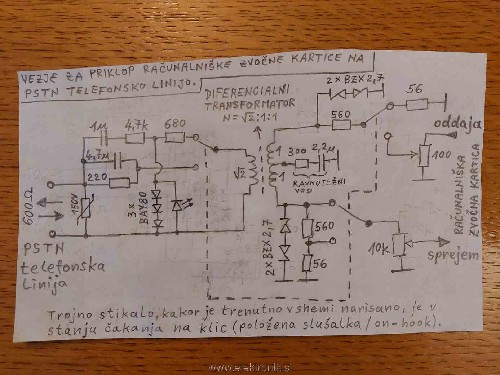 VEZJE ZA PRIKLOP RAČUNALNIŠKE ZVOČNE KARTICE NA
PSTN TELEFONSKO LINIJO.
DIFERENCIALNI
TRANSFORMATOR
N=√2:1:1
2×BZX2,7
56
560
oddaja
100
1μ
4,7k
680
4,7μ
220
600Ω
150V
3× BAY80
√2
1
1
300
2,2μ
RAVNOTEŽNI
VOD
RAČUNALNIŠKA
ZVOČNA KARTICA
2×BZX2,7
560
56
10k
sprejem
PSTN
telefonska
linija
Trojno stikalo, kakor je trenutno v shemi narisano, je v
stanju čakanja na klic (položena slušalka/on-hook).